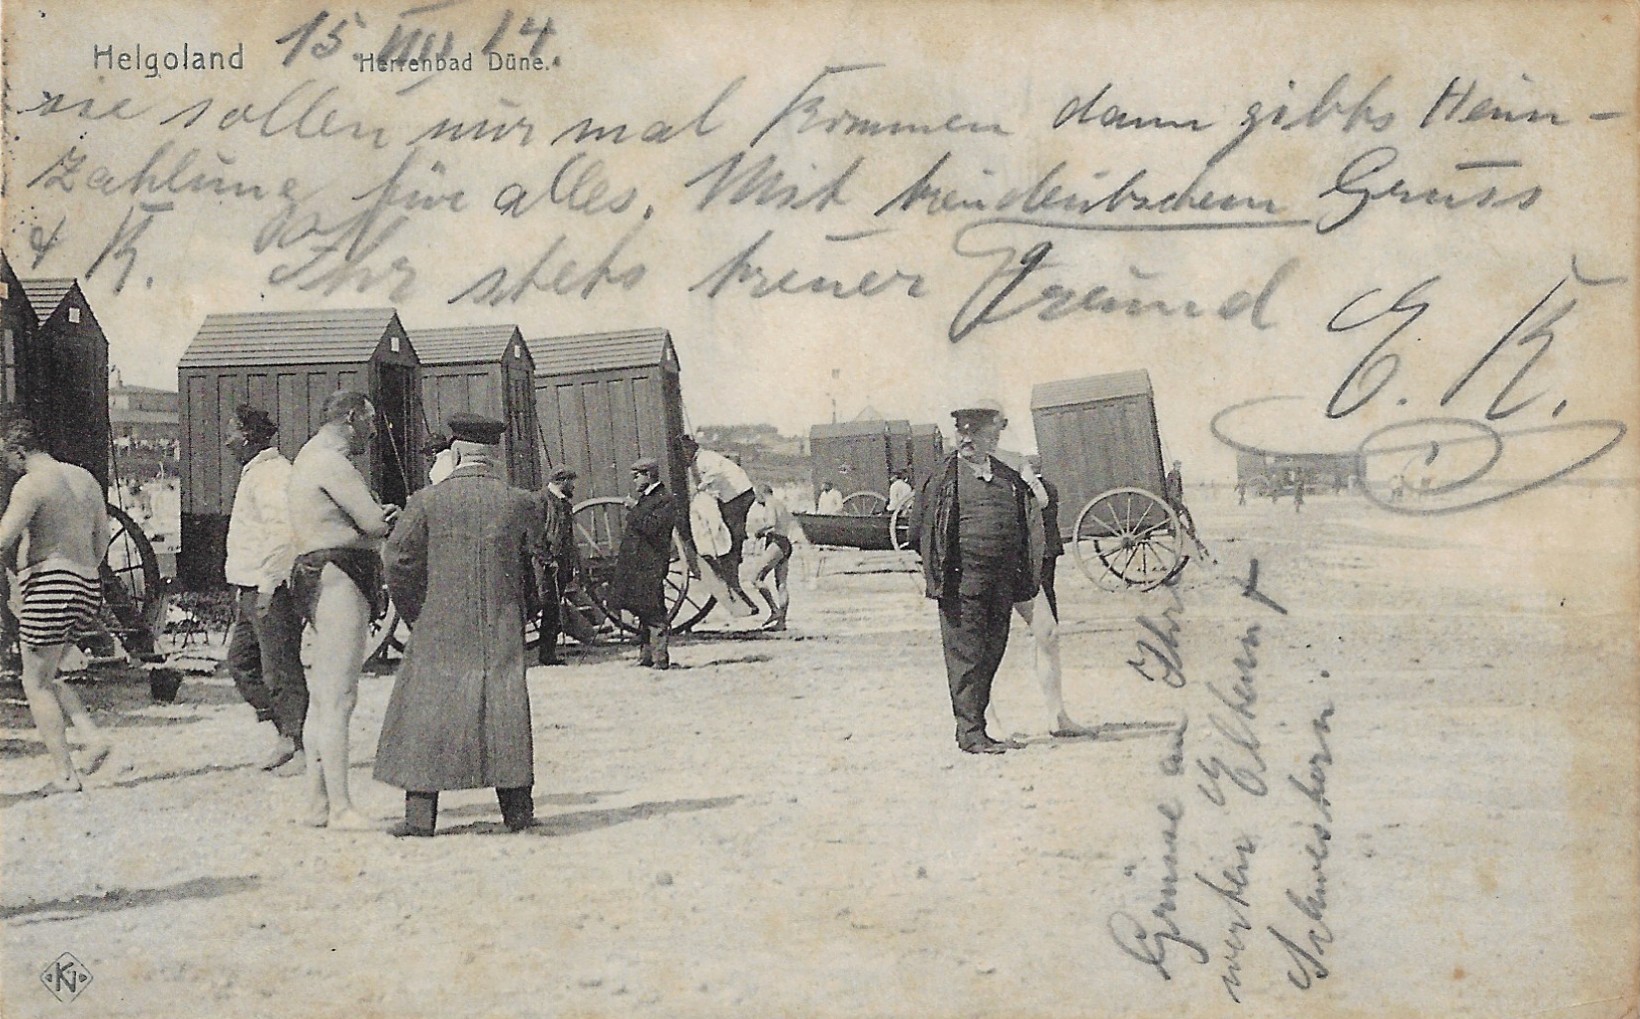 Helgoland
15. VIII. 14.
Herrenbad Düne.
sie sollen nur mal kommen dann gibts Heim-
zahlung für alles. Mit treudeutschem Gruss
& K. Ihr stets treuer Freund
E. K.
Grüsse an Ihre
werten Eltern &
Schwestern.
KN